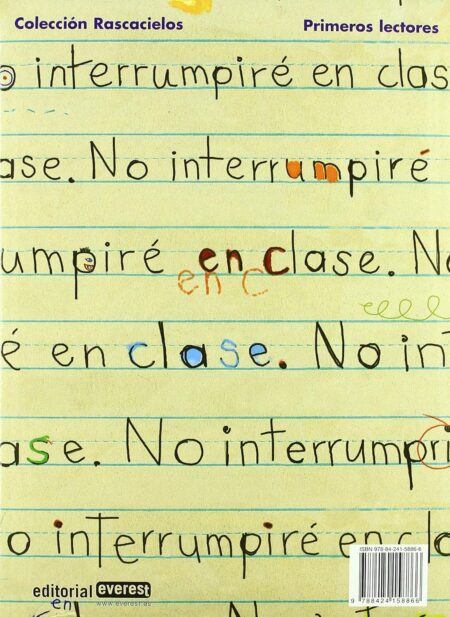 Colección Rascacielos
Primeros lectores
o interrumpiré en clas
ase. No interrumpiré
umpiré en clase. No
en c
é en clase. No in
ase. No interrumpri
o interrumpiré en cla
ISBN 978-84-241-5886-6
editorial everest
en
www.everest.es
9 788424 158866